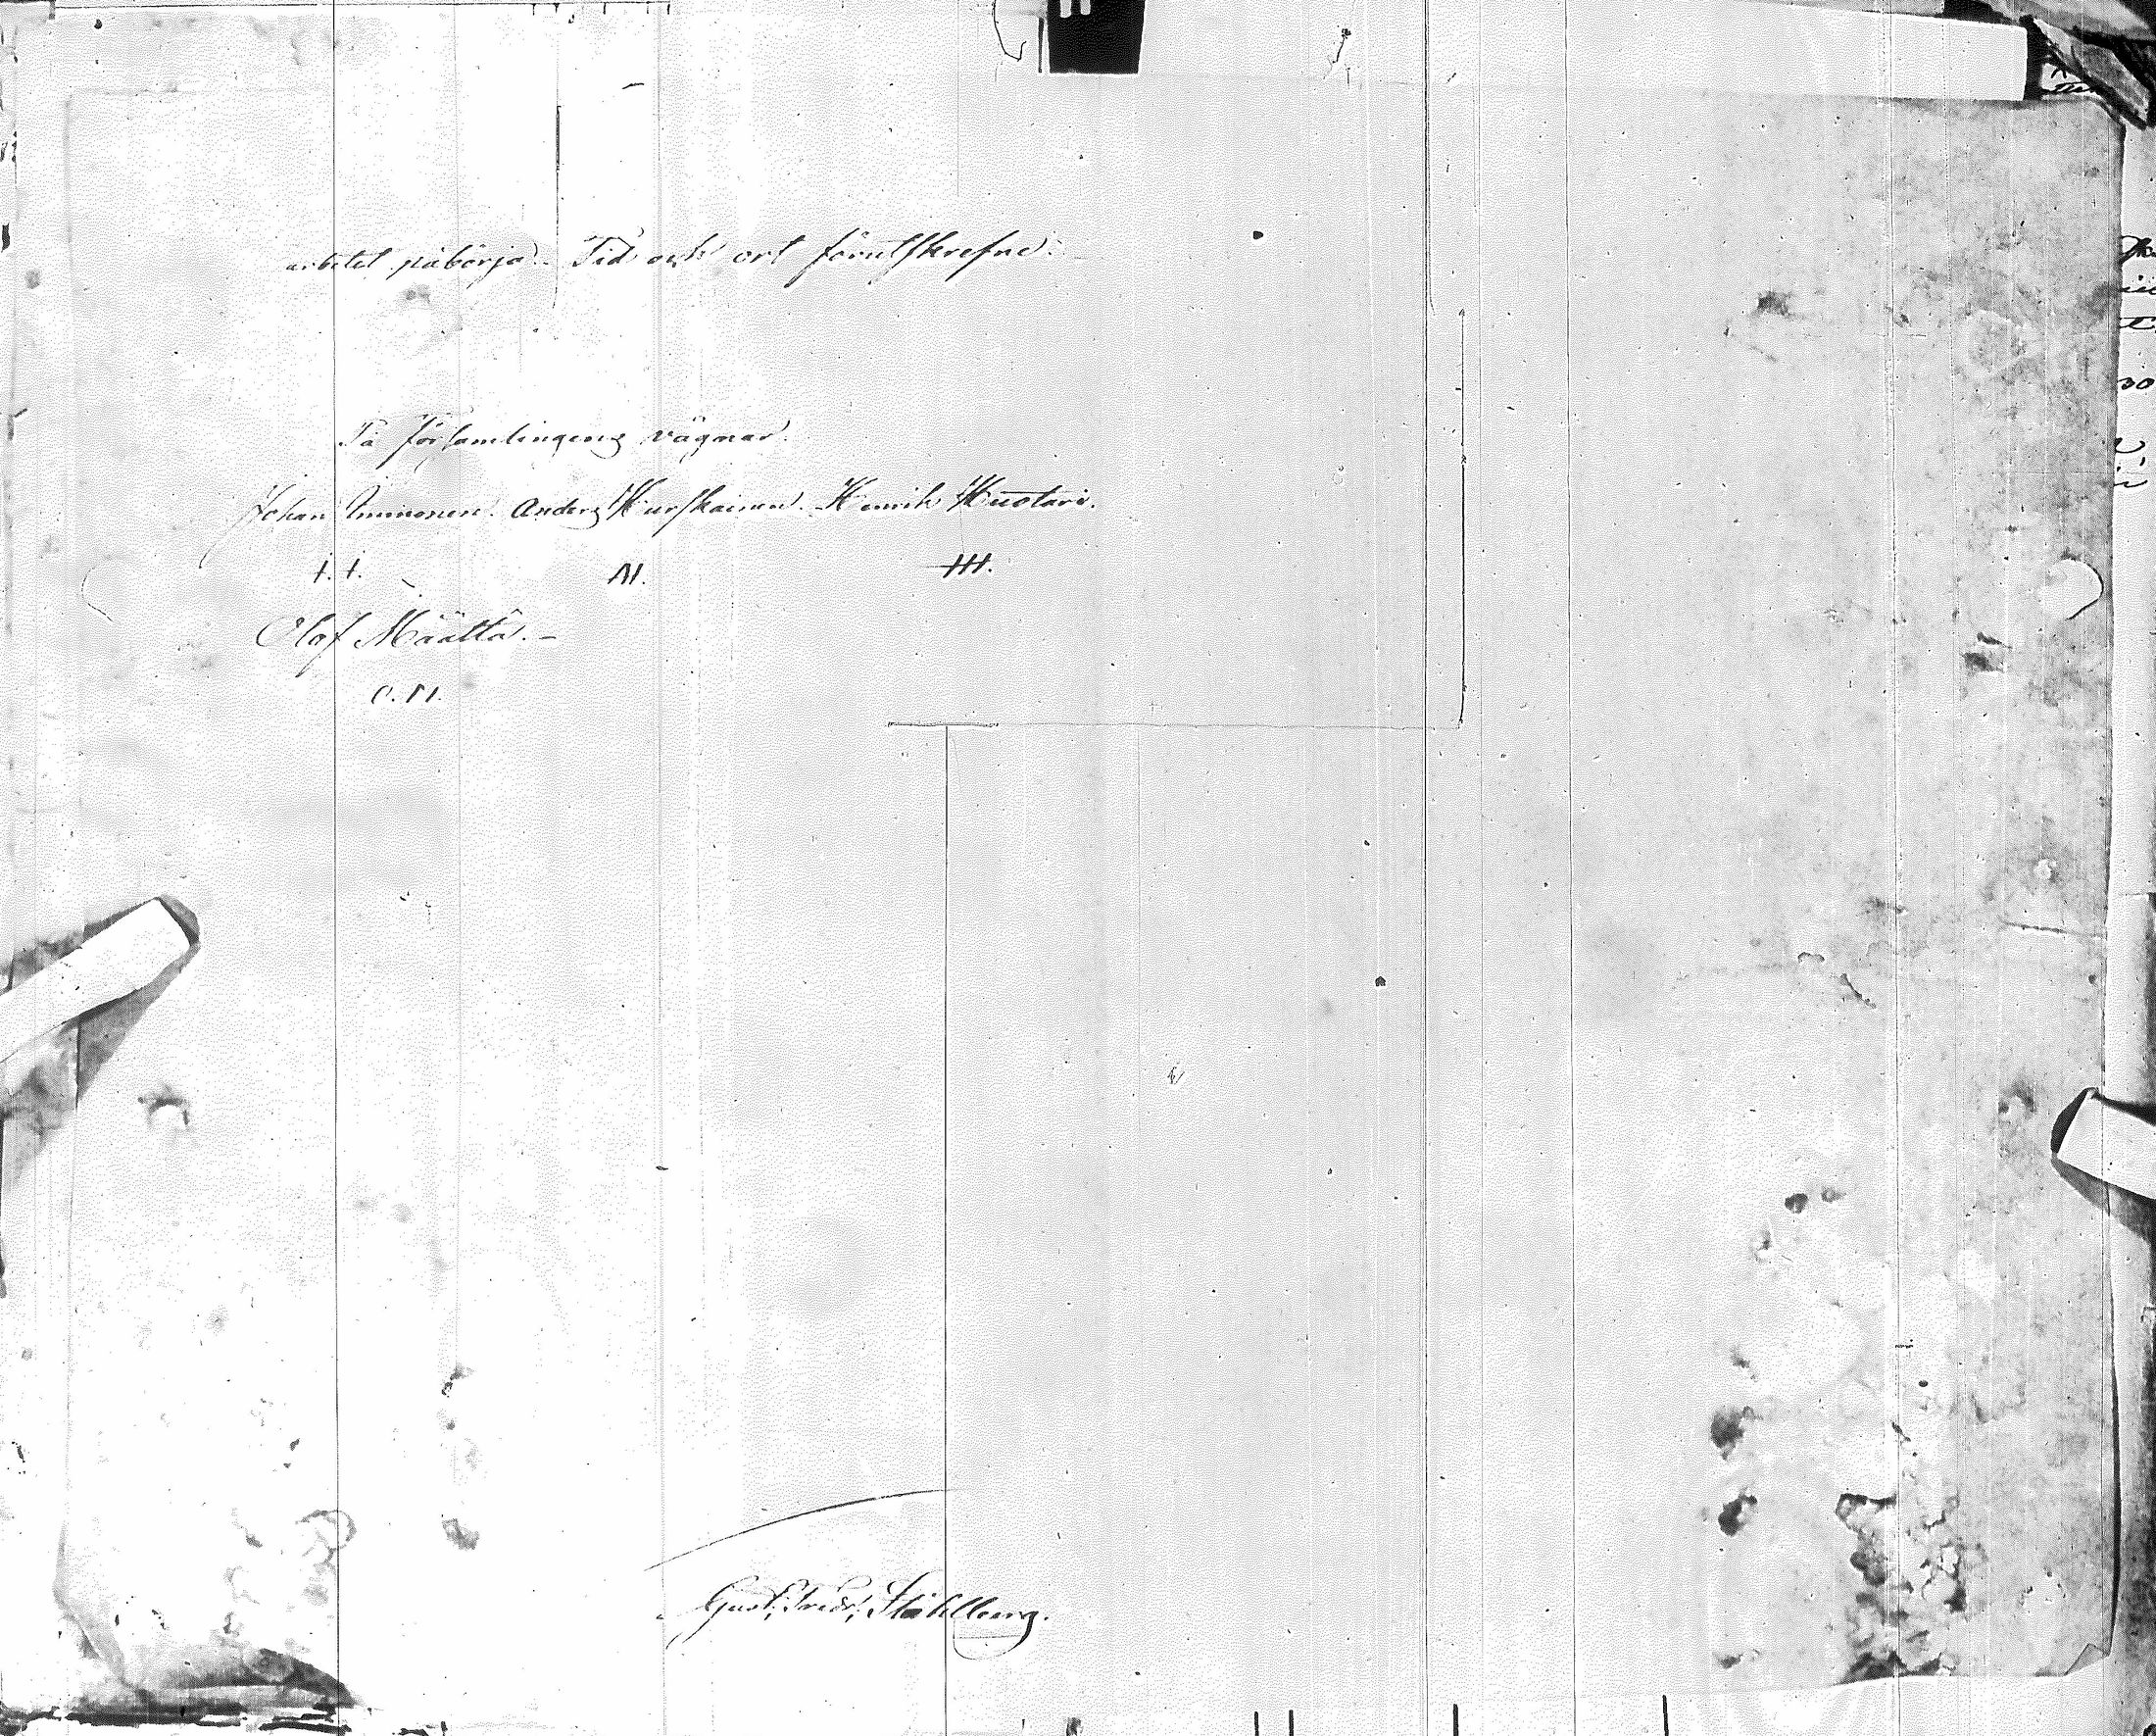 arbetet påbörja. Tid och ort förutskrefne.
På församlingens vägnar.
Johan Immonen. Anders Kurskainen. Henrik Huotari.
I. I. AK. HH.
Olof Määttä. –
O. M.
Gust. Fredr. Ståhlberg.